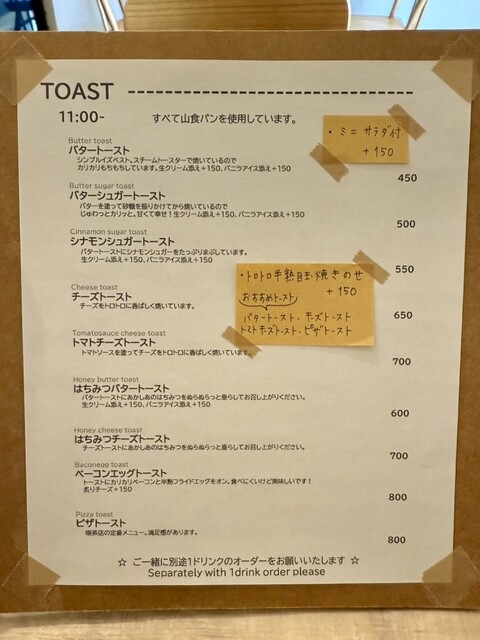 TOAST ------------------------------
11:00-
すべて山食パンを使用しています。
・ミニ サラダ付
+150
Butter toast
バタートースト
シンプルイズベスト。スチームトースターで焼いているので
カリカリもちもちしています。生クリーム添え+150、バニラアイス添え+150
450
Butter sugar toast
バターシュガートースト
バターを塗って砂糖を振りかけてから焼いているので
じゅわっとカリッと。甘くて幸せ!生クリーム添え+150、バニラアイス添え+150
500
Cinnamon sugar toast
シナモンシュガートースト
バタートーストにシナモンシュガーをたっぷりまぶしています。
生クリーム添え+150、バニラアイス添え+150
550
・トロトロ半熟目玉焼きのせ
+150
おすすめトースト
バタートースト・チーズトースト
トマトチーズトースト・ピザトースト
Cheese toast
チーズトースト
チーズをトロトロに香ばしく焼いています。
650
Tomatosauce cheese toast
トマトチーズトースト
トマトソースを塗ってチーズをトロトロに香ばしく焼いています。
700
Honey butter toast
はちみつバタートースト
バタートーストにあかしあのはちみつをぬらぬらっと垂らしてお召し上がりください。
生クリーム添え+150、バニラアイス添え+150
600
Honey cheese toast
はちみつチーズトースト
チーズトーストにあかしあのはちみつをぬらぬらっと垂らしてお召し上がりください。
700
Baconegg toast
ベーコンエッグトースト
トーストにカリカリベーコンと半熟フライドエッグをオン。食べにくいけど美味しいです!
炙りチーズ+150
800
Pizza toast
ピザトースト
喫茶店の定番メニュー。満足感があります。
800
☆ ご一緒に別途1ドリンクのオーダーをお願いいたします ☆
Separately with 1drink order please